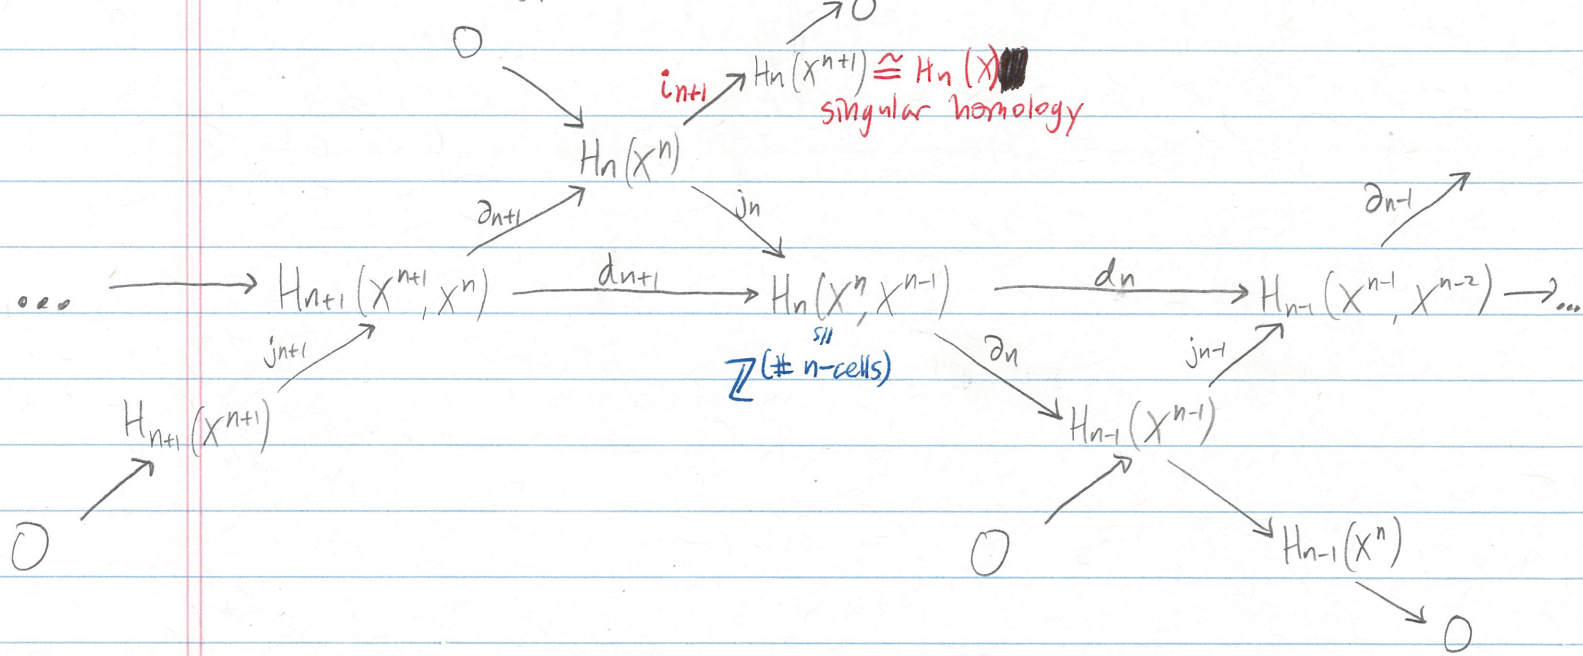 0
0
i_{n+1} H_n(X^{n+1}) ≅ H_n(X)
singular homology
H_n(X^n)
∂_{n+1} j_n ∂_{n-1}
... H_{n+1}(X^{n+1}, X^n) d_{n+1} H_n(X^n, X^{n-1}) d_n H_{n-1}(X^{n-1}, X^{n-2}) ...
j_{n+1} ≅ ∂_n j_{n-1}
ℤ^{(# n-cells)}
H_{n+1}(X^{n+1}) H_{n-1}(X^{n-1})
0 0 H_{n-1}(X^n)
0